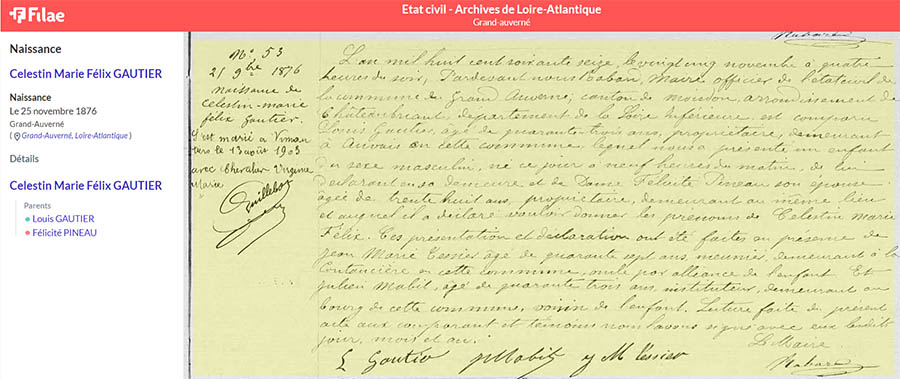 Filae
Etat civil - Archives de Loire-Atlantique
Grand-auverné
Naissance
Celestin Marie Félix GAUTIER
Naissance
Le 25 novembre 1876
Grand-Auverné
( Grand-Auverné, Loire-Atlantique )
Détails
Celestin Marie Félix GAUTIER
Parents
Louis GAUTIER
Félicité PINEAU
N° 53
21 9bre 1876
naissance de
Celestin-marie
félix Gautier.
S'est marié à
le 13 août 1903
avec Chevalier Virginie
Marie
L'an mil huit cent soixante seize, le vingt cinq novembre à quatre
heures du soir, Pardevant nous Maire, officier de l'état civil de
la commune de Grand Auverné, canton de moisdon, arrondissement de
Châteaubriant, département de la Loire Inférieure, est comparu
Louis Gautier, âgé de quarante trois ans, propriétaire, demeurant
à Auvais en cette commune, lequel nous a présenté un enfant
du sexe masculin, né ce jour à neuf heures du matin, de lui
déclarant en sa demeure et de Dame Félicité Pineau son épouse
âgée de trente huit ans, propriétaire, demeurant au même lieu
et auquel il a déclaré vouloir donner les prénoms de Celestin Marie
Félix. Ces présentation et déclaration ont été faites en présence de
Jean Marie Tessier âgé de quarante sept ans, meunier, demeurant à la
en cette commune, oncle par alliance de l'enfant. Et
Julien Mabit, âgé de quarante trois ans, instituteur, demeurant au
bourg de cette commune, voisin de l'enfant. Lecture faite du présent
acte aux comparant et témoins nous l'avons signé avec eux lesdits
jour, mois et an.
Le Maire
L Gautier Mabit J M Tessier